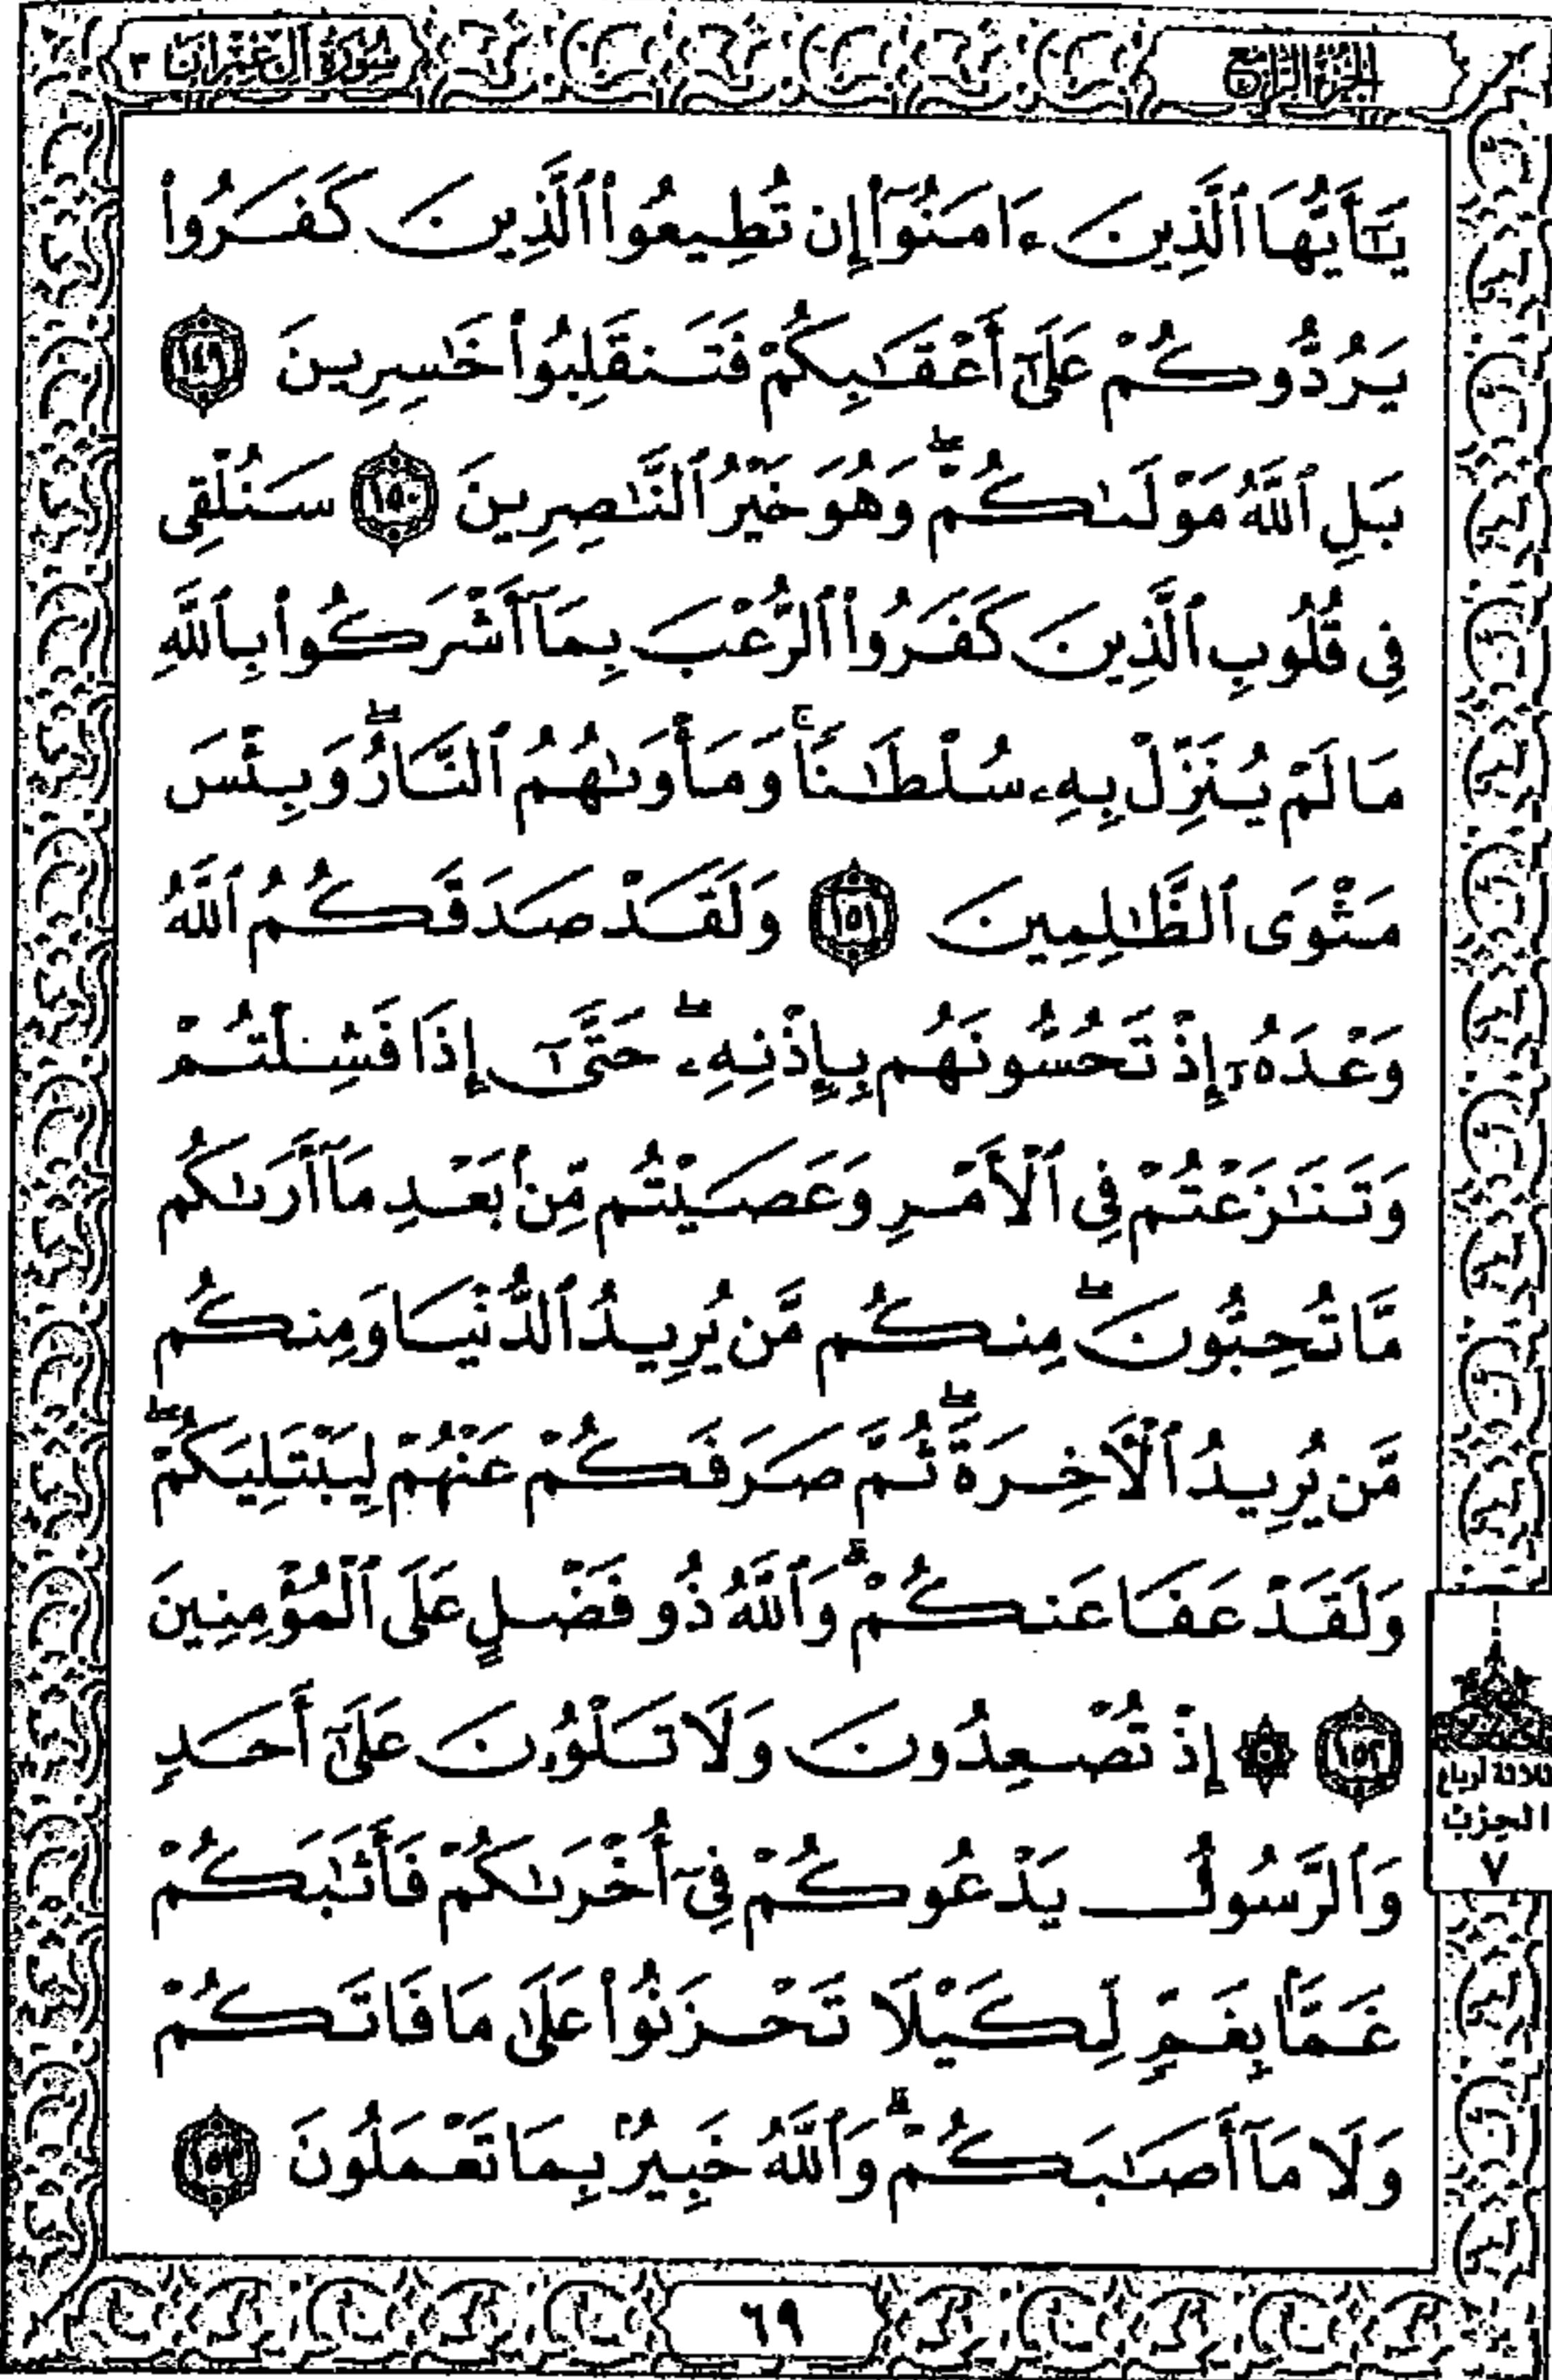 الجزء الرابع
سورة آل عمران ٣
يَٰٓأَيُّهَا ٱلَّذِينَ ءَامَنُوٓا۟ إِن تُطِيعُوا۟ ٱلَّذِينَ كَفَرُوا۟
يَرُدُّوكُمْ عَلَىٰٓ أَعْقَٰبِكُمْ فَتَنقَلِبُوا۟ خَٰسِرِينَ ١٤٩
بَلِ ٱللَّهُ مَوْلَىٰكُمْ ۖ وَهُوَ خَيْرُ ٱلنَّٰصِرِينَ ١٥٠ سَنُلْقِى
فِى قُلُوبِ ٱلَّذِينَ كَفَرُوا۟ ٱلرُّعْبَ بِمَآ أَشْرَكُوا۟ بِٱللَّهِ
مَا لَمْ يُنَزِّلْ بِهِۦ سُلْطَٰنًا ۚ وَمَأْوَىٰهُمُ ٱلنَّارُ ۖ وَبِئْسَ
مَثْوَى ٱلظَّٰلِمِينَ ١٥١ وَلَقَدْ صَدَقَكُمُ ٱللَّهُ
وَعْدَهُۥٓ إِذْ تَحُسُّونَهُم بِإِذْنِهِۦ ۖ حَتَّىٰٓ إِذَا فَشِلْتُمْ
وَتَنَٰزَعْتُمْ فِى ٱلْأَمْرِ وَعَصَيْتُم مِّنۢ بَعْدِ مَآ أَرَىٰكُم
مَّا تُحِبُّونَ ۖ مِنكُم مَّن يُرِيدُ ٱلدُّنْيَا وَمِنكُم
مَّن يُرِيدُ ٱلْـَٔاخِرَةَ ۖ ثُمَّ صَرَفَكُمْ عَنْهُمْ لِيَبْتَلِيَكُمْ ۖ
وَلَقَدْ عَفَا عَنكُمْ ۗ وَٱللَّهُ ذُو فَضْلٍ عَلَى ٱلْمُؤْمِنِينَ
١٥٢ ۞ إِذْ تُصْعِدُونَ وَلَا تَلْوُۥنَ عَلَىٰٓ أَحَدٍ
وَٱلرَّسُولُ يَدْعُوكُمْ فِىٓ أُخْرَىٰكُمْ فَأَثَٰبَكُمْ
غَمًّۢا بِغَمٍّ لِّكَيْلَا تَحْزَنُوا۟ عَلَىٰ مَا فَاتَكُمْ
وَلَا مَآ أَصَٰبَكُمْ ۗ وَٱللَّهُ خَبِيرٌۢ بِمَا تَعْمَلُونَ ١٥٣
ثلاثة أرباع
الحزب
٧
٦٩